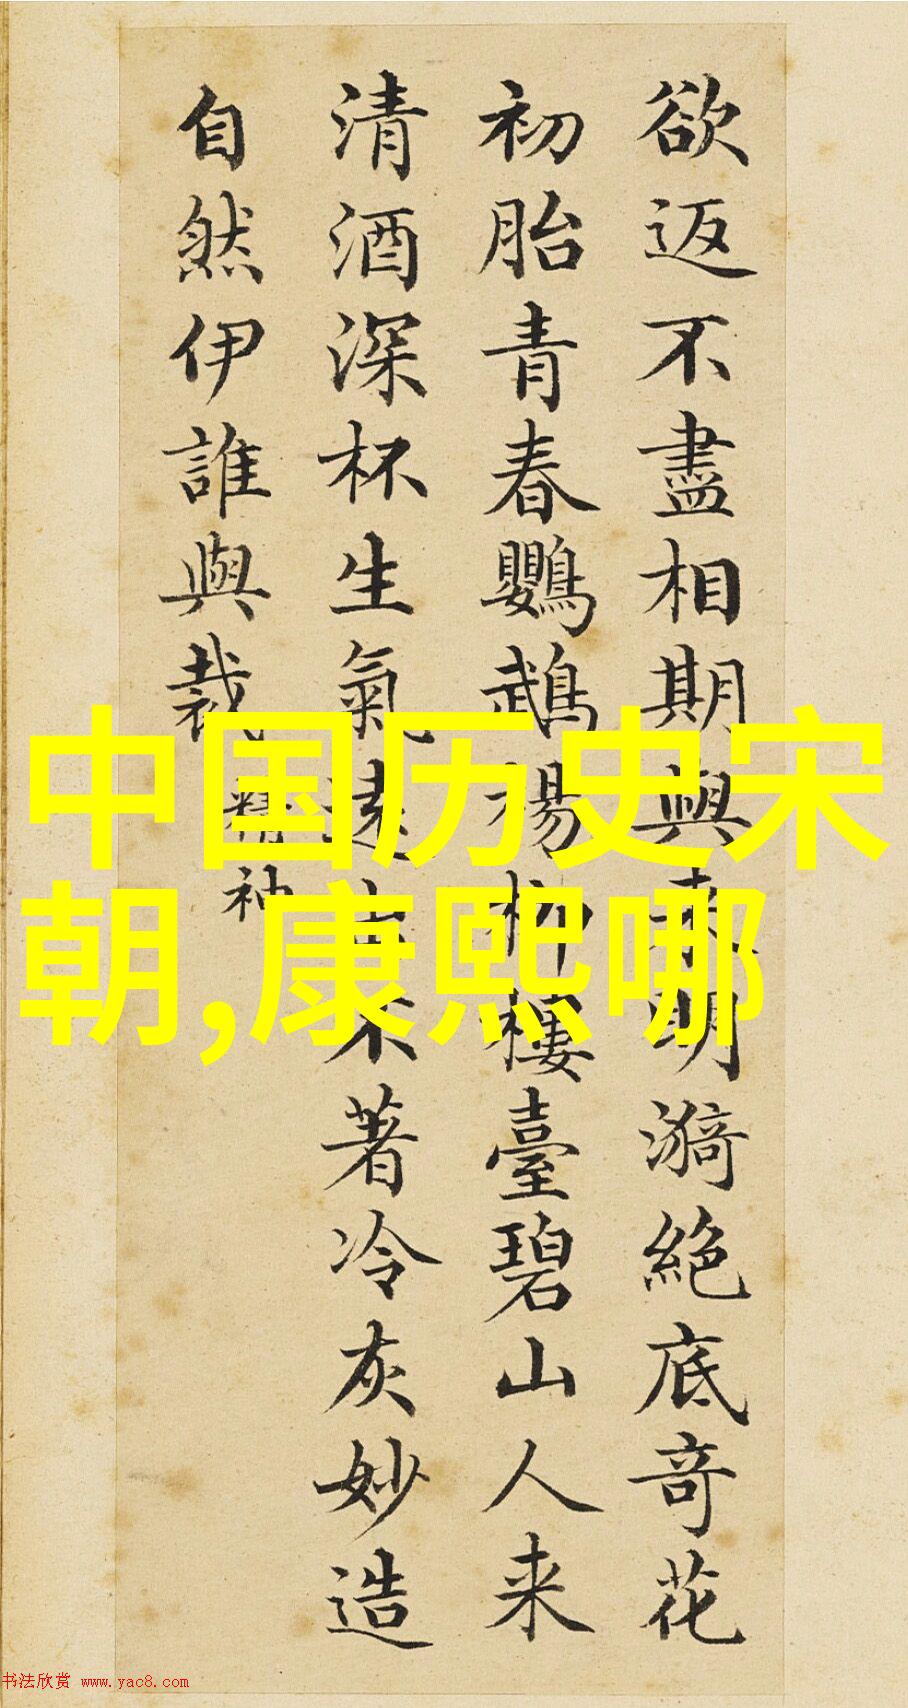 欲返不盡相期與来明漪絶底奇花
初胎青春鸚鵡楊柳樓臺碧山人来
清酒深杯生氣遠出不著冷灰妙造
自然伊誰與裁
精神
中国历史宋
朝,康熙哪
书法欣赏 www.yac8.com